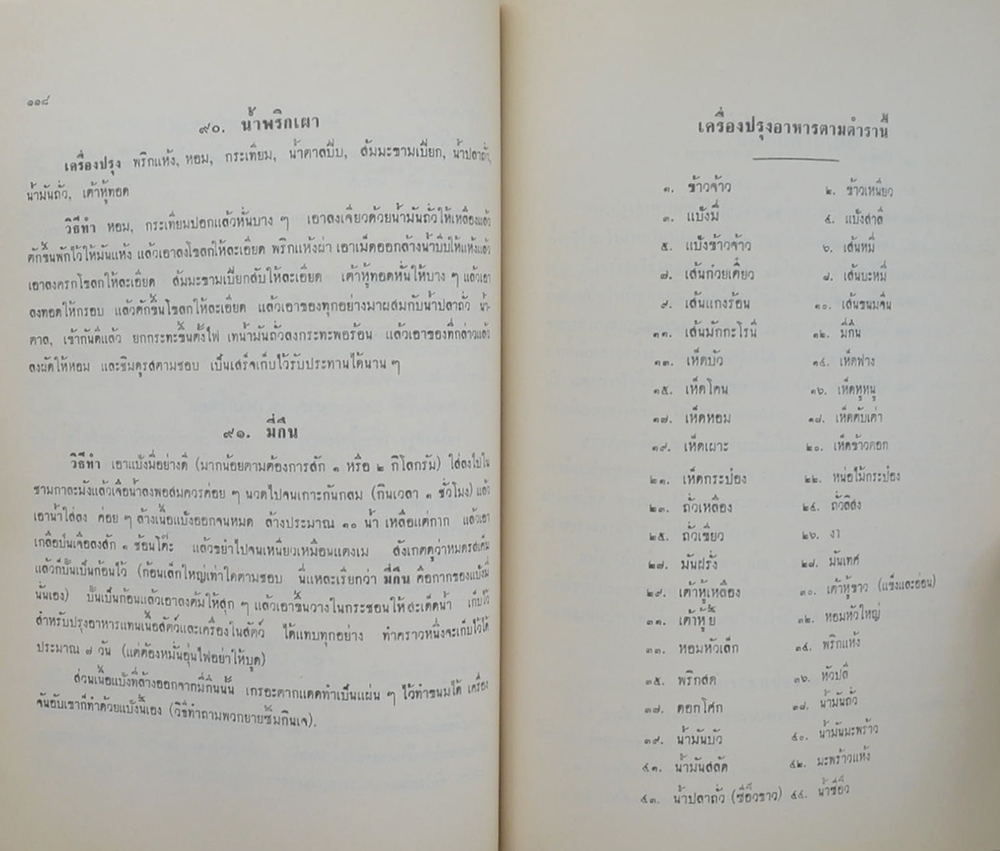 ๑๑๘
๙๐. น้ำพริกเผา
เครื่องปรุง พริกแห้ง, หอม, กระเทียม, น้ำตาลปีบ, ส้มมะขามเปียก, น้ำปลาถั่ว,
น้ำมันถั่ว, เต้าหู้ทอด
วิธีทำ หอม, กระเทียมปอกแล้วหั่นบาง ๆ เอาลงเจียวด้วยน้ำมันถั่วให้เหลืองแล้ว
ตักขึ้นพักไว้ให้มันแห้ง แล้วเอาลงโขลกให้ละเอียด พริกแห้งผ่า เอาเม็ดออกล้างน้ำบีบให้แห้งแล้ว
เอาลงครกโขลกให้ละเอียด ส้มมะขามเปียกสับให้ละเอียด เต้าหู้ทอดหั่นให้บาง ๆ แล้วเอา
ลงทอดให้กรอบ แล้วตักขึ้นโขลกให้ละเอียด แล้วเอาของทุกอย่างมาผสมกับน้ำปลาถั่ว น้ำ-
ตาล, เข้ากันดีแล้ว ยกกระทะขึ้นตั้งไฟ เทน้ำมันถั่วลงกระทะพอร้อน แล้วเอาของที่กล่าวแล้ว
ลงผัดให้หอม และชิมดูรสตามชอบ เป็นเสร็จเก็บไว้รับประทานได้นาน ๆ
๙๑. มี่กึน
วิธีทำ เอาแป้งมี่อย่างดี (มากน้อยตามต้องการสัก ๑ หรือ ๒ กิโลกรัม) ใส่ลงไปใน
ชามกาละมังแล้วเจือน้ำลงพอสมควรค่อย ๆ นวดไปจนเกาะกันกลม (กินเวลา ๑ ชั่วโมง) แล้ว
เอาน้ำใส่ลง ค่อย ๆ ล้างเนื้อแป้งออกจนหมด ล้างประมาณ ๑๐ น้ำ เหลือแต่กาก แล้วเอา
เกลือป่นเจือลงสัก ๑ ช้อนโต๊ะ แล้วขยำไปจนเหนียวเหมือนแตงเม สังเกตดูว่าหมดรสเค็ม
แล้วก็ปั้นเป็นก้อนไว้ (ก้อนเล็กใหญ่เท่าใดตามชอบ นี่แหละเรียกว่า มี่กึน คือกากของแป้งมี่
นั้นเอง) ปั้นเป็นก้อนแล้วเอาลงต้มให้สุก ๆ แล้วเอาขึ้นวางในกระชอนให้สะเด็ดน้ำ เก็บไว้
สำหรับปรุงอาหารแทนเนื้อสัตว์และเครื่องในสัตว์ ได้แทบทุกอย่าง ทำคราวหนึ่งจะเก็บไว้ได้
ประมาณ ๗ วัน (แต่ต้องหมั่นอุ่นไฟอย่าให้บูด)
ส่วนเนื้อแป้งที่ล้างออกจากมี่กึนนั้น เกรอะตากแดดทำเป็นแผ่น ๆ ไว้ทำขนมได้ เครื่อง
จันอับเขาก็ทำด้วยแป้งนี้เอง (วิธีทำถามพวกยายซิ้มกินเจ).
เครื่องปรุงอาหารตามตำรานี้
๑. ข้าวจ้าว ๒. ข้าวเหนียว
๓. แป้งมี่ ๔. แป้งสาลี
๕. แป้งข้าวจ้าว ๖. เส้นหมี่
๗. เส้นก๋วยเตี๋ยว ๘. เส้นบะหมี่
๙. เส้นแกงร้อน ๑๐. เส้นขนมจีน
๑๑. เส้นมักกะโรนี ๑๒. มี่กึน
๑๓. เห็ดบัว ๑๔. เห็ดฟาง
๑๕. เห็ดโคน ๑๖. เห็ดหูหนู
๑๗. เห็ดหอม ๑๘. เห็ดตับเต่า
๑๙. เห็ดเผาะ ๒๐. เห็ดข้าวตอก
๒๑. เห็ดกระป๋อง ๒๒. หน่อไม้กระป๋อง
๒๓. ถั่วเหลือง ๒๔. ถั่วลิสง
๒๕. ถั่วเขียว ๒๖. งา
๒๗. มันฝรั่ง ๒๘. มันเทศ
๒๙. เต้าหู้เหลือง ๓๐. เต้าหู้ขาว (แข็งและอ่อน)
๓๑. เต้าหู้ยี้ ๓๒. หอมหัวใหญ่
๓๓. หอมหัวเล็ก ๓๔. พริกแห้ง
๓๕. พริกสด ๓๖. หัวปลี
๓๗. ดอกโศก ๓๘. น้ำมันถั่ว
๓๙. น้ำมันบัว ๔๐. น้ำมันมะพร้าว
๔๑. น้ำมันสลัด ๔๒. มะพร้าวแห้ง
๔๓. น้ำปลาถั่ว (ซีอิ๊วขาว) ๔๔. น้ำซีอิ๊ว